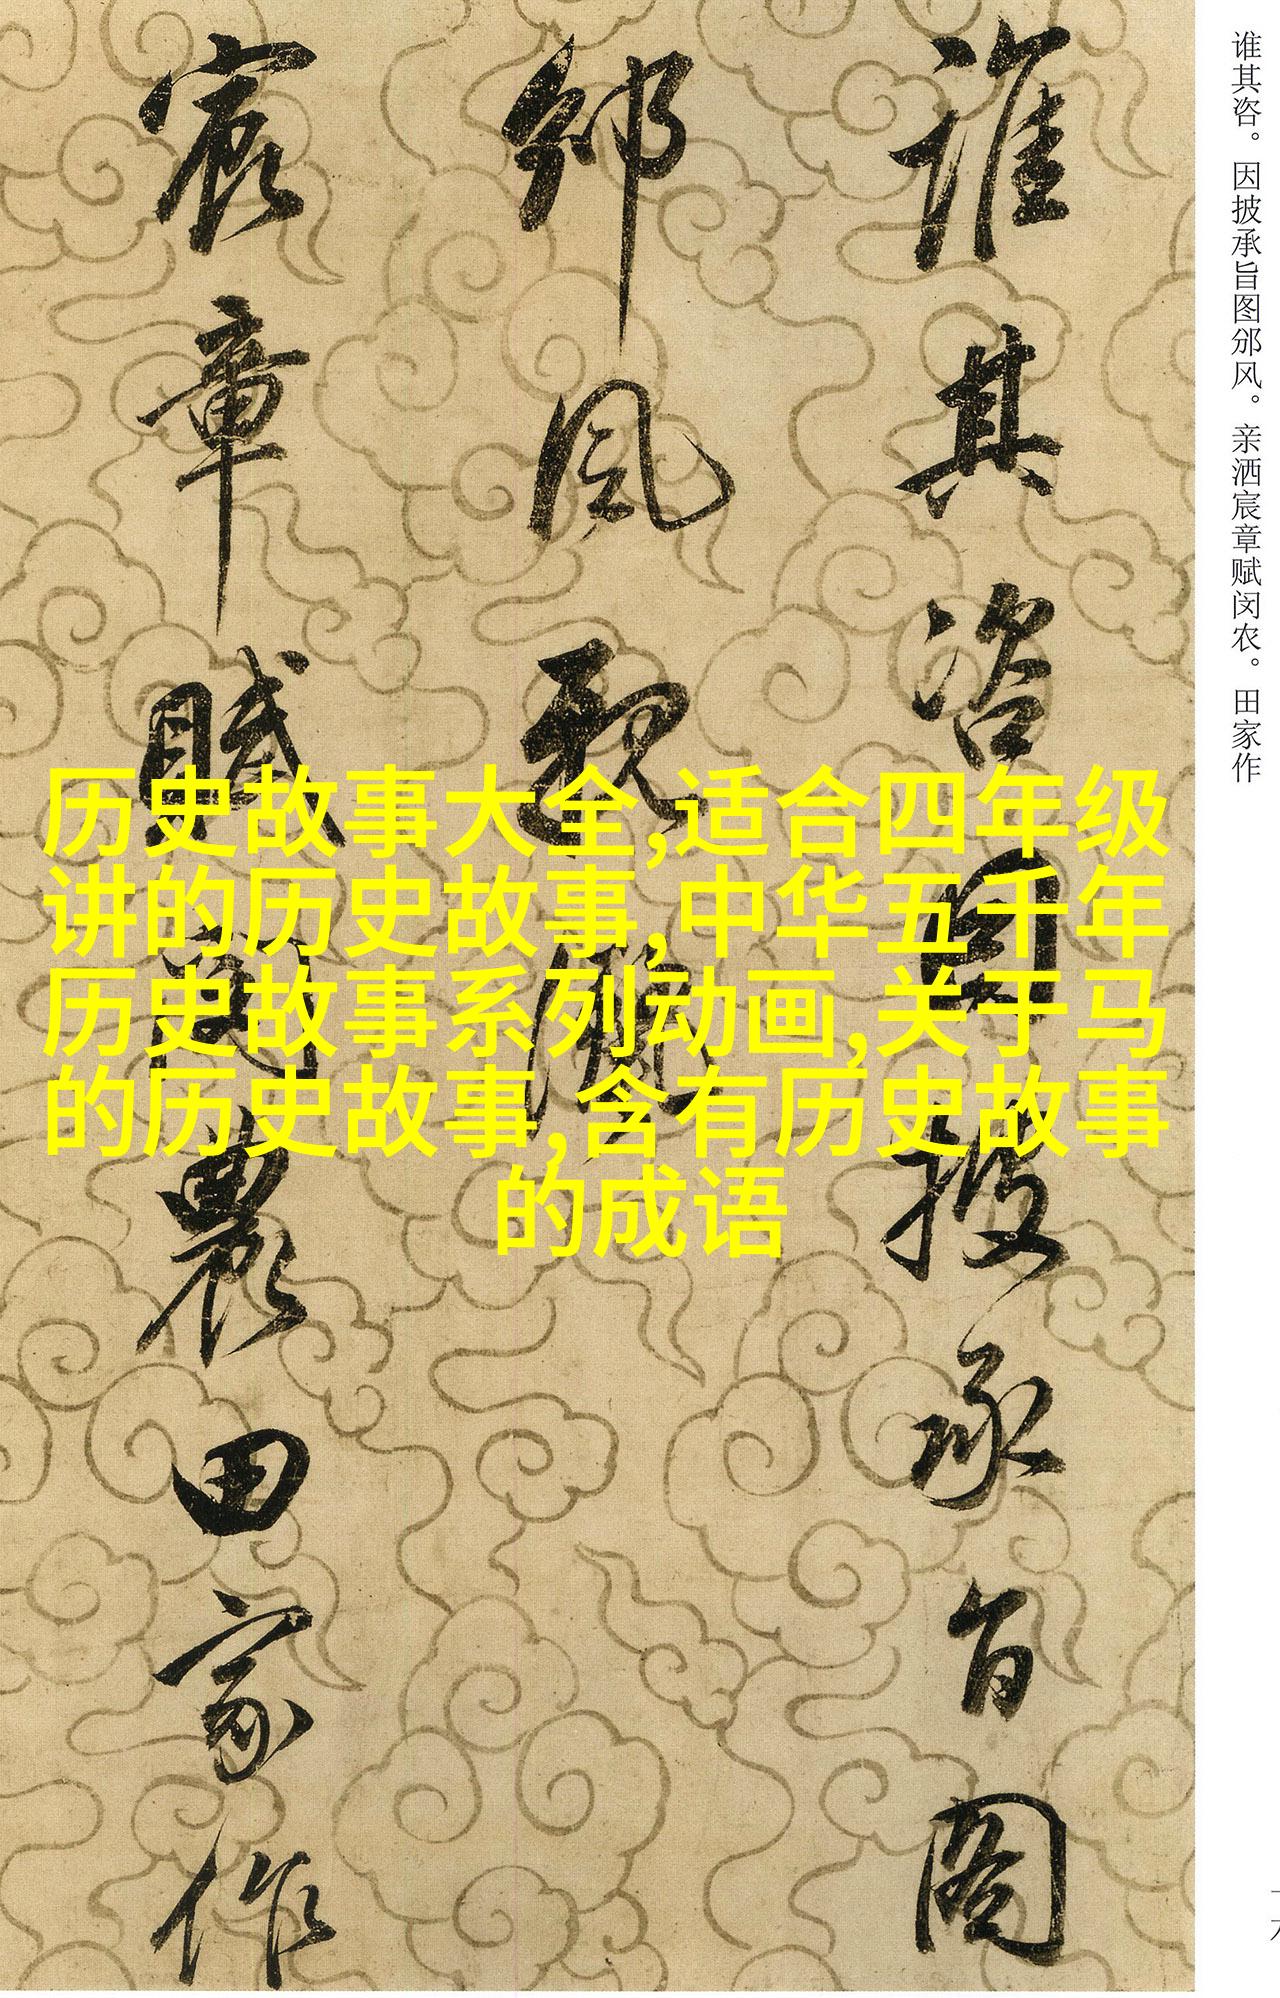 谁其咨。因披承旨图邠风。亲洒宸章赋闵农。田家作
誰其咨因披承旨圖
邠風親灑
宸章賦閔農田家作
历史故事大全,适合四年级
讲的历史故事,中华五千年
历史故事系列动画,关于马
的历史故事,含有历史故事
的成语